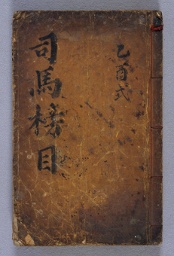 乙酉式
司馬榜目